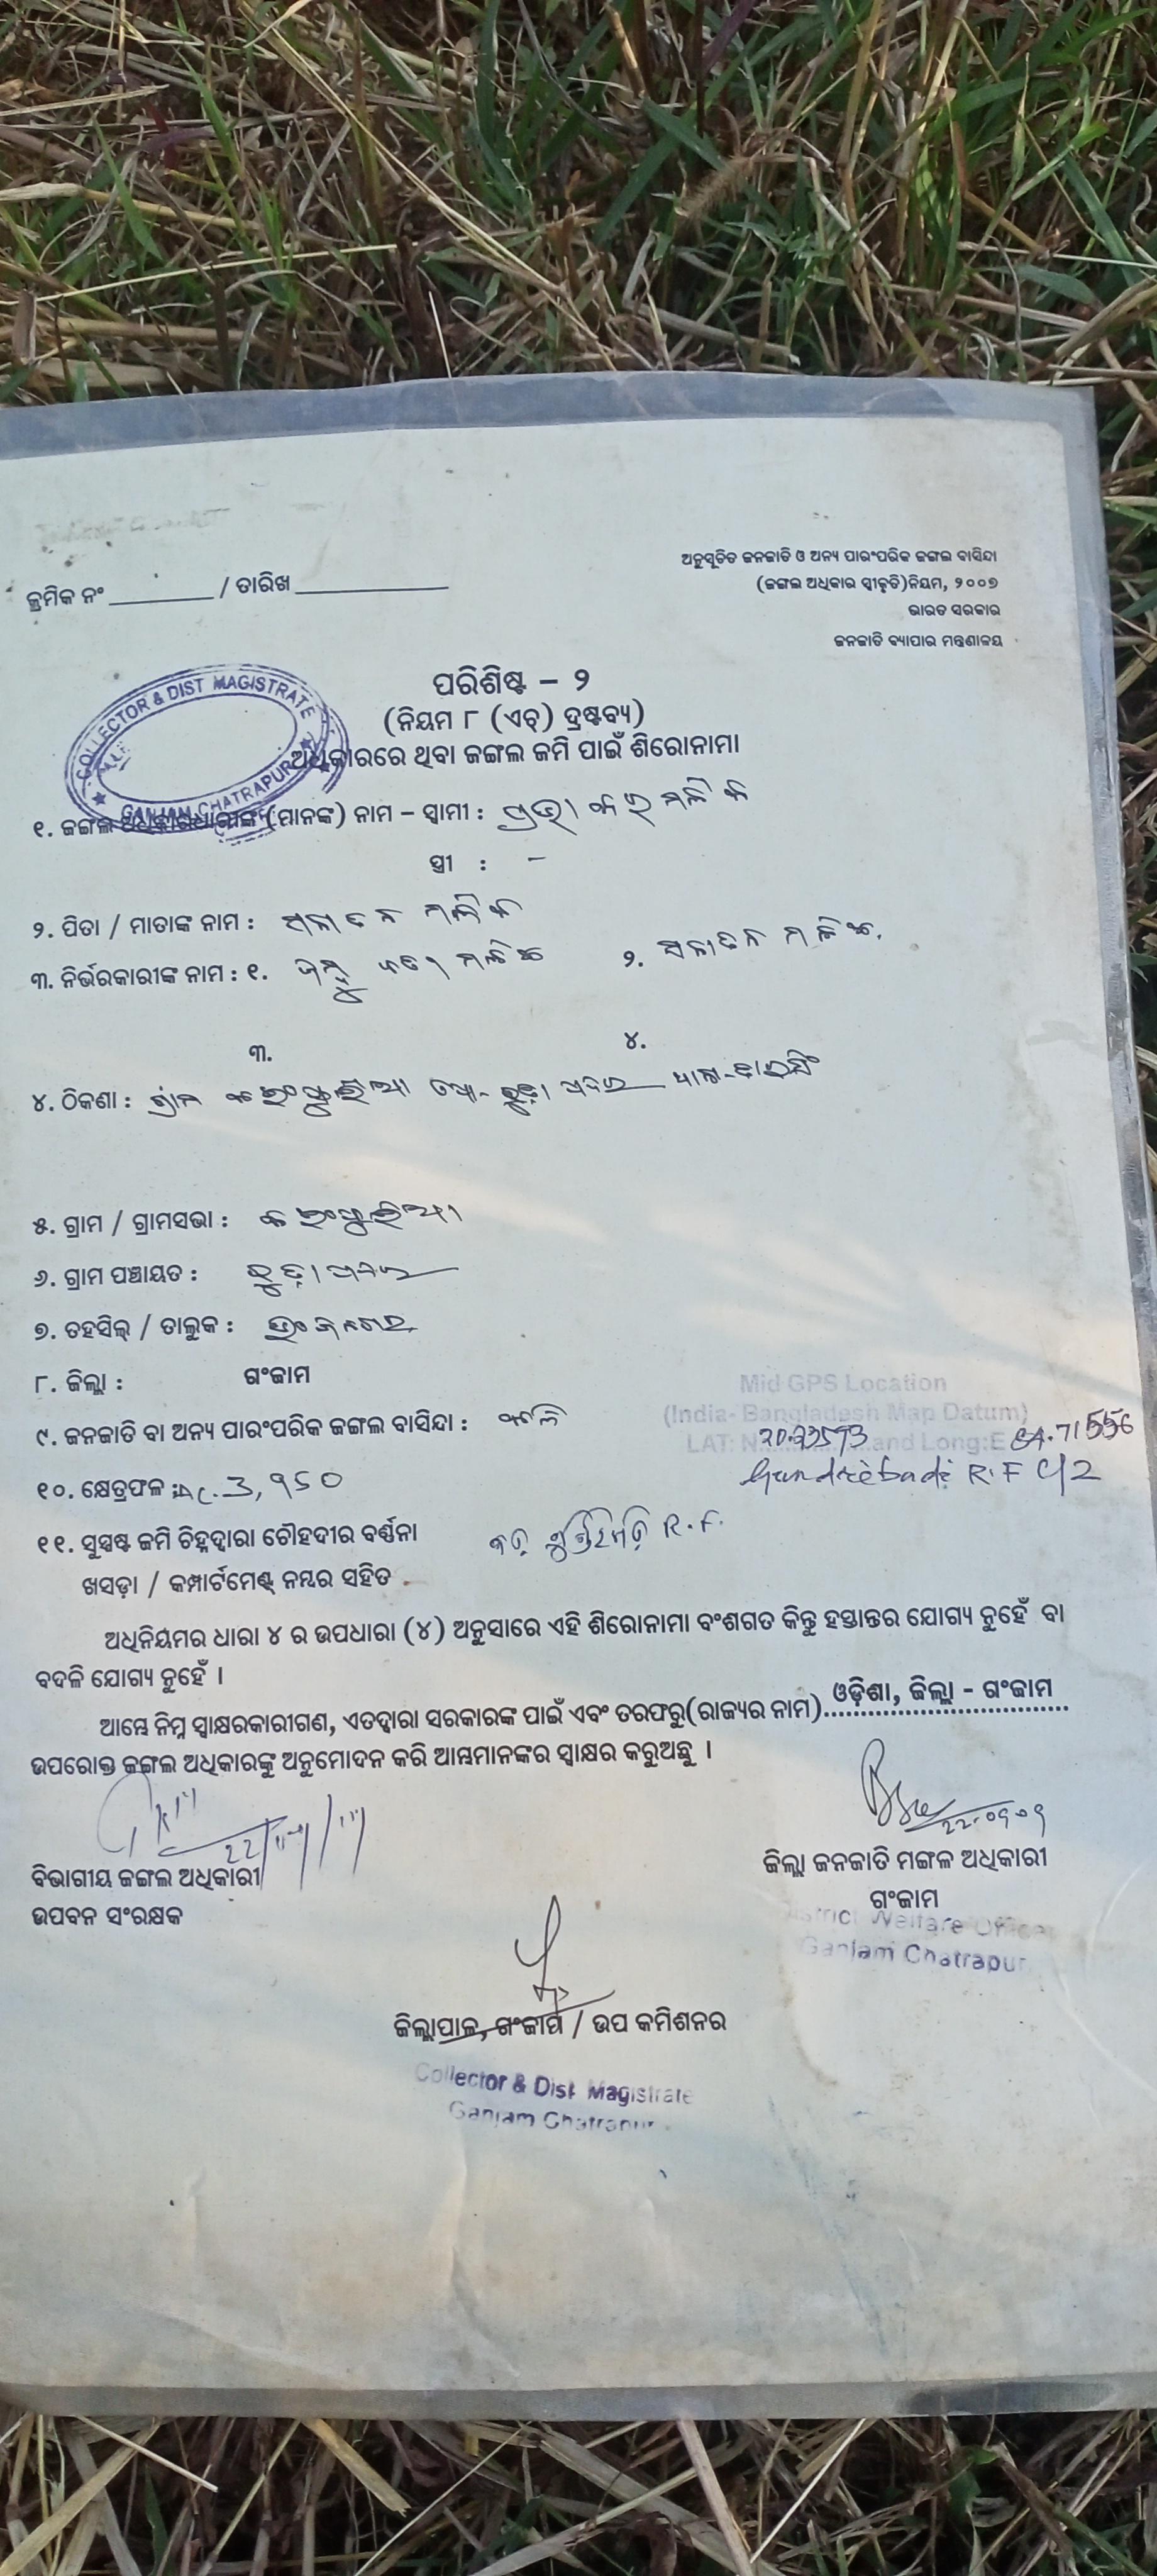 ଅନୁସୂଚିତ ଜନଜାତି ଓ ଅନ୍ୟ ପାରଂପରିକ ଜଙ୍ଗଲ ବାସିନ୍ଦା
(ଜଙ୍ଗଲ ଅଧିକାର ସ୍ୱୀକୃତି)ନିୟମ, ୨୦୦୭
ଭାରତ ସରକାର
ଜନଜାତି ବ୍ୟାପାର ମନ୍ତ୍ରଣାଳୟ
କ୍ରମିକ ନଂ ________ / ତାରିଖ ____________
COLLECTOR & DIST MAGISTRATE
GANJAM CHATRAPUR
ପରିଶିଷ୍ଟ – ୨
(ନିୟମ ୮ (ଏଚ୍) ଦ୍ରଷ୍ଟବ୍ୟ)
ଅଧିକାରରେ ଥିବା ଜଙ୍ଗଲ ଜମି ପାଇଁ ଶିରୋନାମା
୧. ଜଙ୍ଗଲ ଅଧିକାରଧାରୀଙ୍କ (ମାନଙ୍କ) ନାମ – ସ୍ୱାମୀ : ପ୍ରଭାକର ମଲିକ
ସ୍ତ୍ରୀ : –
୨. ପିତା / ମାତାଙ୍କ ନାମ : ସନାତନ ମଲିକ
୩. ନିର୍ଭରକାରୀଙ୍କ ନାମ : ୧. ମଲିକ ୨. ସନାତନ ମଲିକ
୩. ୪.
୪. ଠିକଣା : ଗ୍ରାମ
୫. ଗ୍ରାମ / ଗ୍ରାମସଭା :
୬. ଗ୍ରାମ ପଞ୍ଚାୟତ :
୭. ତହସିଲ୍ / ତାଲୁକ : ଭଂଜନଗର
୮. ଜିଲ୍ଲା : ଗଂଜାମ
Mid GPS Location
(India- Bangladesh Map Datum)
୯. ଜନଜାତି ବା ଅନ୍ୟ ପାରଂପରିକ ଜଙ୍ଗଲ ବାସିନ୍ଦା :
LAT: N and Long:E 84.71556
୧୦. କ୍ଷେତ୍ରଫଳ : Ac. R.F
୧୧. ସୁସ୍ପଷ୍ଟ ଜମି ଚିହ୍ନଦ୍ୱାରା ଚୌହଦୀର ବର୍ଣ୍ଣନା R.F.
ଖସଡ଼ା / କମ୍ପାର୍ଟମେଣ୍ଟ୍ ନମ୍ବର ସହିତ
ଅଧିନିୟମର ଧାରା ୪ ର ଉପଧାରା (୪) ଅନୁସାରେ ଏହି ଶିରୋନାମା ବଂଶଗତ କିନ୍ତୁ ହସ୍ତାନ୍ତର ଯୋଗ୍ୟ ନୁହେଁ ବା
ବଦଳି ଯୋଗ୍ୟ ନୁହେଁ ।
ଆମ୍ଭେ ନିମ୍ନ ସ୍ୱାକ୍ଷରକାରୀଗଣ, ଏତଦ୍ୱାରା ସରକାରଙ୍କ ପାଇଁ ଏବଂ ତରଫରୁ(ରାଜ୍ୟର ନାମ) ଓଡ଼ିଶା, ଜିଲ୍ଲା - ଗଂଜାମ
ଉପରୋକ୍ତ ଜଙ୍ଗଲ ଅଧିକାରଙ୍କୁ ଅନୁମୋଦନ କରି ଆମ୍ଭମାନଙ୍କର ସ୍ୱାକ୍ଷର କରୁଅଛୁ ।
22.09.09
ବିଭାଗୀୟ ଜଙ୍ଗଲ ଅଧିକାରୀ
ଉପବନ ସଂରକ୍ଷକ
ଜିଲ୍ଲା ଜନଜାତି ମଙ୍ଗଳ ଅଧିକାରୀ
ଗଂଜାମ
District Welfare Officer
Ganjam Chatrapur
ଜିଲ୍ଲାପାଳ, ଗଂଜାମ / ଉପ କମିଶନର
Collector & Dist Magistrate
Ganjam Chatrapur